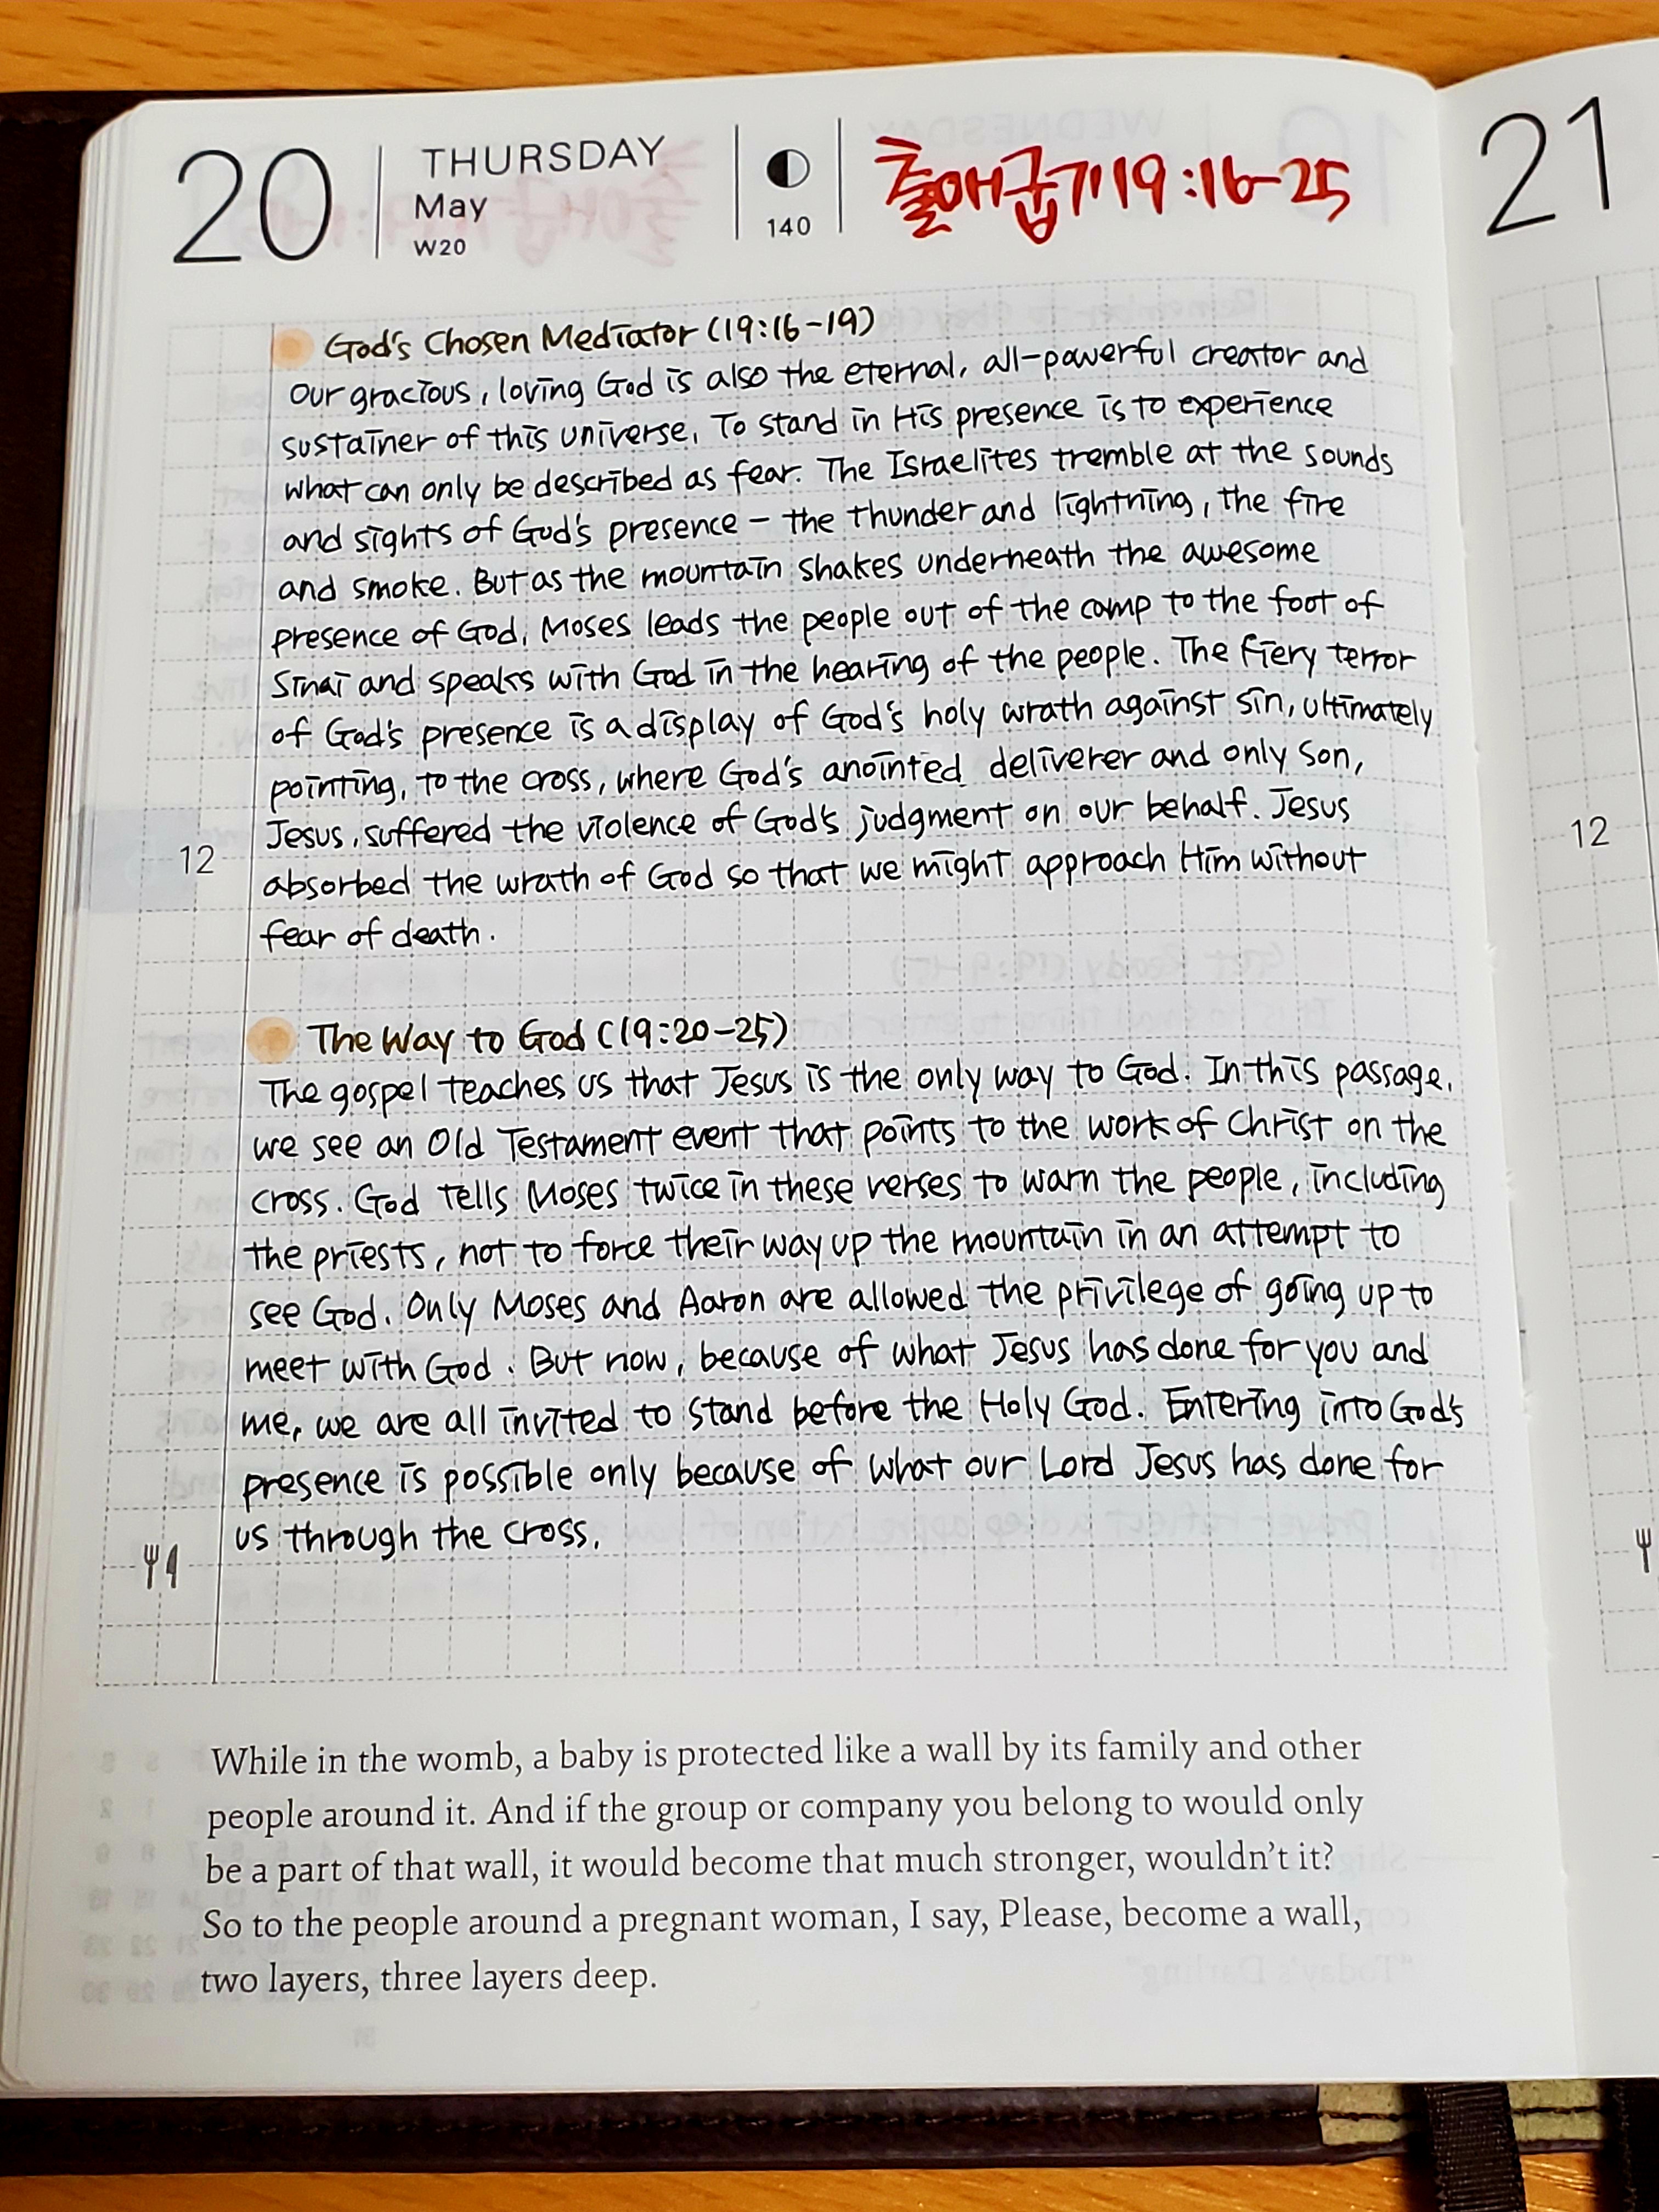 20
THURSDAY
May
W20
140
출애굽기 19:16-25
21
God's Chosen Mediator (19:16-19)
Our gracious, loving God is also the eternal, all-powerful creator and
sustainer of this universe. To stand in His presence is to experience
what can only be described as fear. The Israelites tremble at the sounds
and sights of God's presence – the thunder and lightning, the fire
and smoke. But as the mountain shakes underneath the awesome
presence of God, Moses leads the people out of the camp to the foot of
Sinai and speaks with God in the hearing of the people. The fiery terror
of God's presence is a display of God's holy wrath against sin, ultimately
pointing, to the cross, where God's anointed deliverer and only Son,
Jesus, suffered the violence of God's judgment on our behalf. Jesus
12
absorbed the wrath of God so that we might approach Him without
fear of death.
12
The Way to God (19:20-25)
The gospel teaches us that Jesus is the only way to God. In this passage,
we see an Old Testament event that points to the work of Christ on the
cross. God tells Moses twice in these verses to warn the people, including
the priests, not to force their way up the mountain in an attempt to
see God. Only Moses and Aaron are allowed the privilege of going up to
meet with God. But now, because of what Jesus has done for you and
me, we are all invited to stand before the Holy God. Entering into God's
presence is possible only because of what our Lord Jesus has done for
us through the cross.
While in the womb, a baby is protected like a wall by its family and other
people around it. And if the group or company you belong to would only
be a part of that wall, it would become that much stronger, wouldn't it?
So to the people around a pregnant woman, I say, Please, become a wall,
two layers, three layers deep.